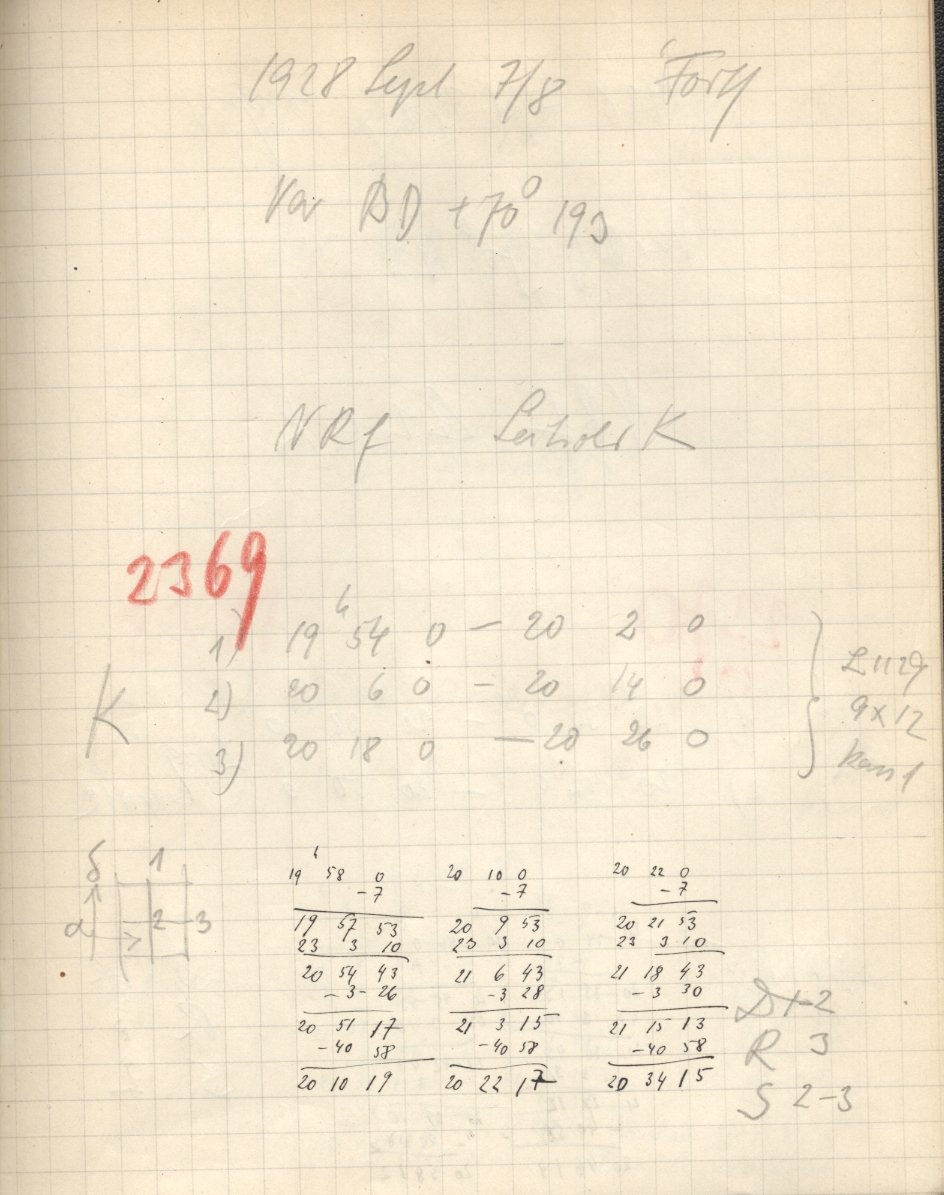 1928 Sept 7/8
Var BD +70° 193
NRf K
2369
1) 19 h 54 0 — 20 2 0
K 2) 20 6 0 — 20 14 0
3) 20 18 0 — 20 26 0
L1129
9x12
δ 1
α 2 3
19 h 58 0 20 10 0 20 22 0
-7 -7 -7
19 57 53 20 9 53 20 21 53
23 3 10 23 3 10 23 3 10
20 54 43 21 6 43 21 18 43
-3-26 -3 28 -3 30
20 51 17 21 3 15 21 15 13
-40 58 -40 58 -40 58
20 10 19 20 22 17 20 34 15
D 1-2
R 3
S 2-3